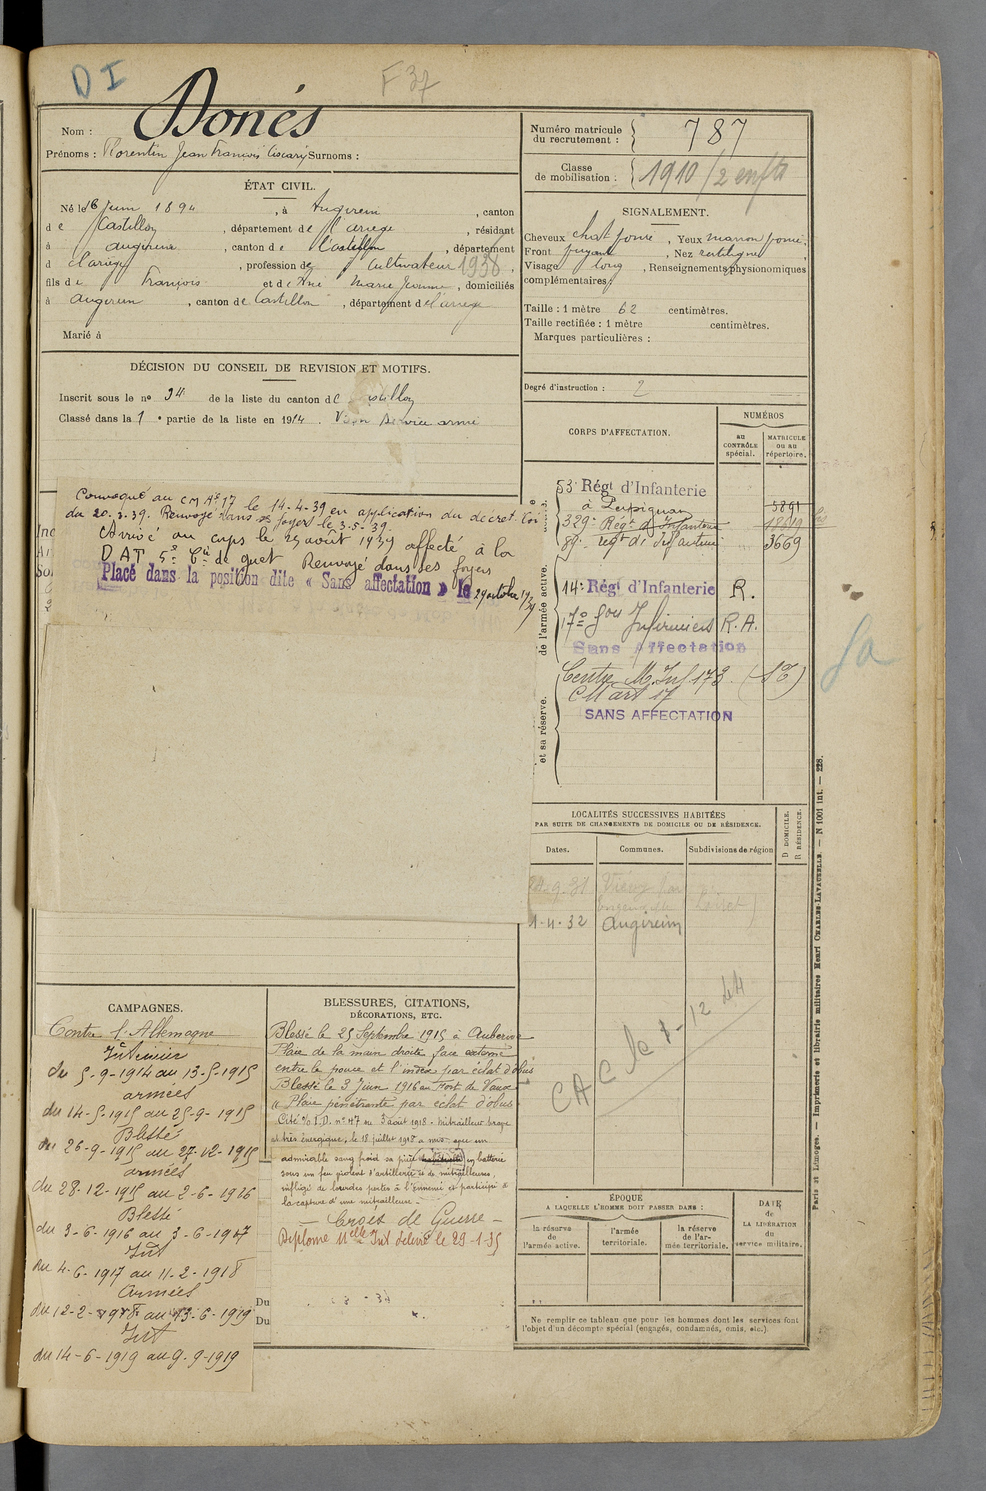 D I
F 37
Donés
Nom :
Prénoms : Florentin Jean François Surnoms :
ÉTAT CIVIL.
Né le 16 Juin 1894, à Augirein, canton
de Castillon, département de l'ariège, résidant
à augirein, canton de Castillon, département
d l'ariège, profession de Cultivateur 1938,
fils de François et de Marie Jeanne, domiciliés
à augirein, canton de Castillon, département de l'ariège
Marié à
DÉCISION DU CONSEIL DE REVISION ET MOTIFS.
Inscrit sous le nº 34 de la liste du canton de Castillon
Classé dans la 1e partie de la liste en 1914. Bon Service armé
Convoqué au CM Ar 17 le 14-4-39 en application du décret loi
du 20.3.39. Renvoyé dans ses foyers le 3.5.39.
Arrivé au corps le 25 août 1939 affecté à la
DAT 5e Cie de guet Renvoyé dans ses foyers
Placé dans la position dite « Sans affectation » le 24 octobre 1939
CAMPAGNES.
Contre l'Allemagne
Intérieur
du 5-9-1914 au 13-5-1915
armées
du 14-5-1915 au 25-9-1915
Blessé
du 26-9-1915 au 27-12-1915
armées
du 28-12-1915 au 2-6-1916
Blessé
du 3-6-1916 au 3-6-1917
Int
du 4-6-1917 au 11-2-1918
Armées
du 12-2-1918 au 13-6-1919
Int
du 14-6-1919 au 9-9-1919
Du
Du
BLESSURES, CITATIONS,
DÉCORATIONS, ETC.
Blessé le 25 Septembre 1915 à Auberive
Plaie de la main droite face externe
entre le pouce et l'index par éclat d'obus
Blessé le 3 Juin 1916 au Fort de Vaux
"Plaie pénétrante par éclat d'obus"
Cité O/I.D. nº 47 du 5 août 1918 - Mitrailleur brave
et très énergique, le 18 juillet 1918 a mis avec un
admirable sang froid sa pièce en batterie
sous un feu violent d'artillerie et de mitrailleuses
infligé de lourdes pertes à l'ennemi et participé à
la capture d'une mitrailleuse -
- Croix de Guerre -
Diplôme Melle Int délivré le 29-1-35
Numéro matricule
du recrutement : 787
Classe
de mobilisation : 1910 / 2 enfts
SIGNALEMENT.
Cheveux chat foncé, Yeux marron foncé,
Front fuyant, Nez rectiligne,
Visage long, Renseignements physionomiques
complémentaires :
Taille : 1 mètre 62 centimètres.
Taille rectifiée : 1 mètre centimètres.
Marques particulières :
Degré d'instruction : 2
CORPS D'AFFECTATION.
NUMÉROS
au CONTRÔLE spécial.
MATRICULE ou au répertoire.
de l'armée active.
et sa réserve.
53e Régt d'Infanterie
à Perpignan 5891
329e Régt d'Infanterie
89e regt d'infanterie 3669
14e Régt d'Infanterie R.
17e Son Infirmiers R.A.
Sans Affectation
Centre M. Inf 173 (ST)
CM art 17
SANS AFFECTATION
LOCALITÉS SUCCESSIVES HABITÉES
PAR SUITE DE CHANGEMENTS DE DOMICILE OU DE RÉSIDENCE.
Dates.
Communes.
Subdivisions de région
D DOMICILE.
R RÉSIDENCE.
1-4-32 Augirein
CAC le 1-12 44
ÉPOQUE
A LAQUELLE L'HOMME DOIT PASSER DANS :
la réserve
de
l'armée active.
l'armée
territoriale.
la réserve
de l'ar-
mée territoriale.
DATE
de
LA LIBÉRATION
du
service militaire.
Ne remplir ce tableau que pour les hommes dont les services font
l'objet d'un décompte spécial (engagés, condamnés, omis, etc.).
Paris et Limoges. — Imprimerie et librairie militaires Henri CHARLES-LAVAUZELLE. — N 1001 int. — 228.